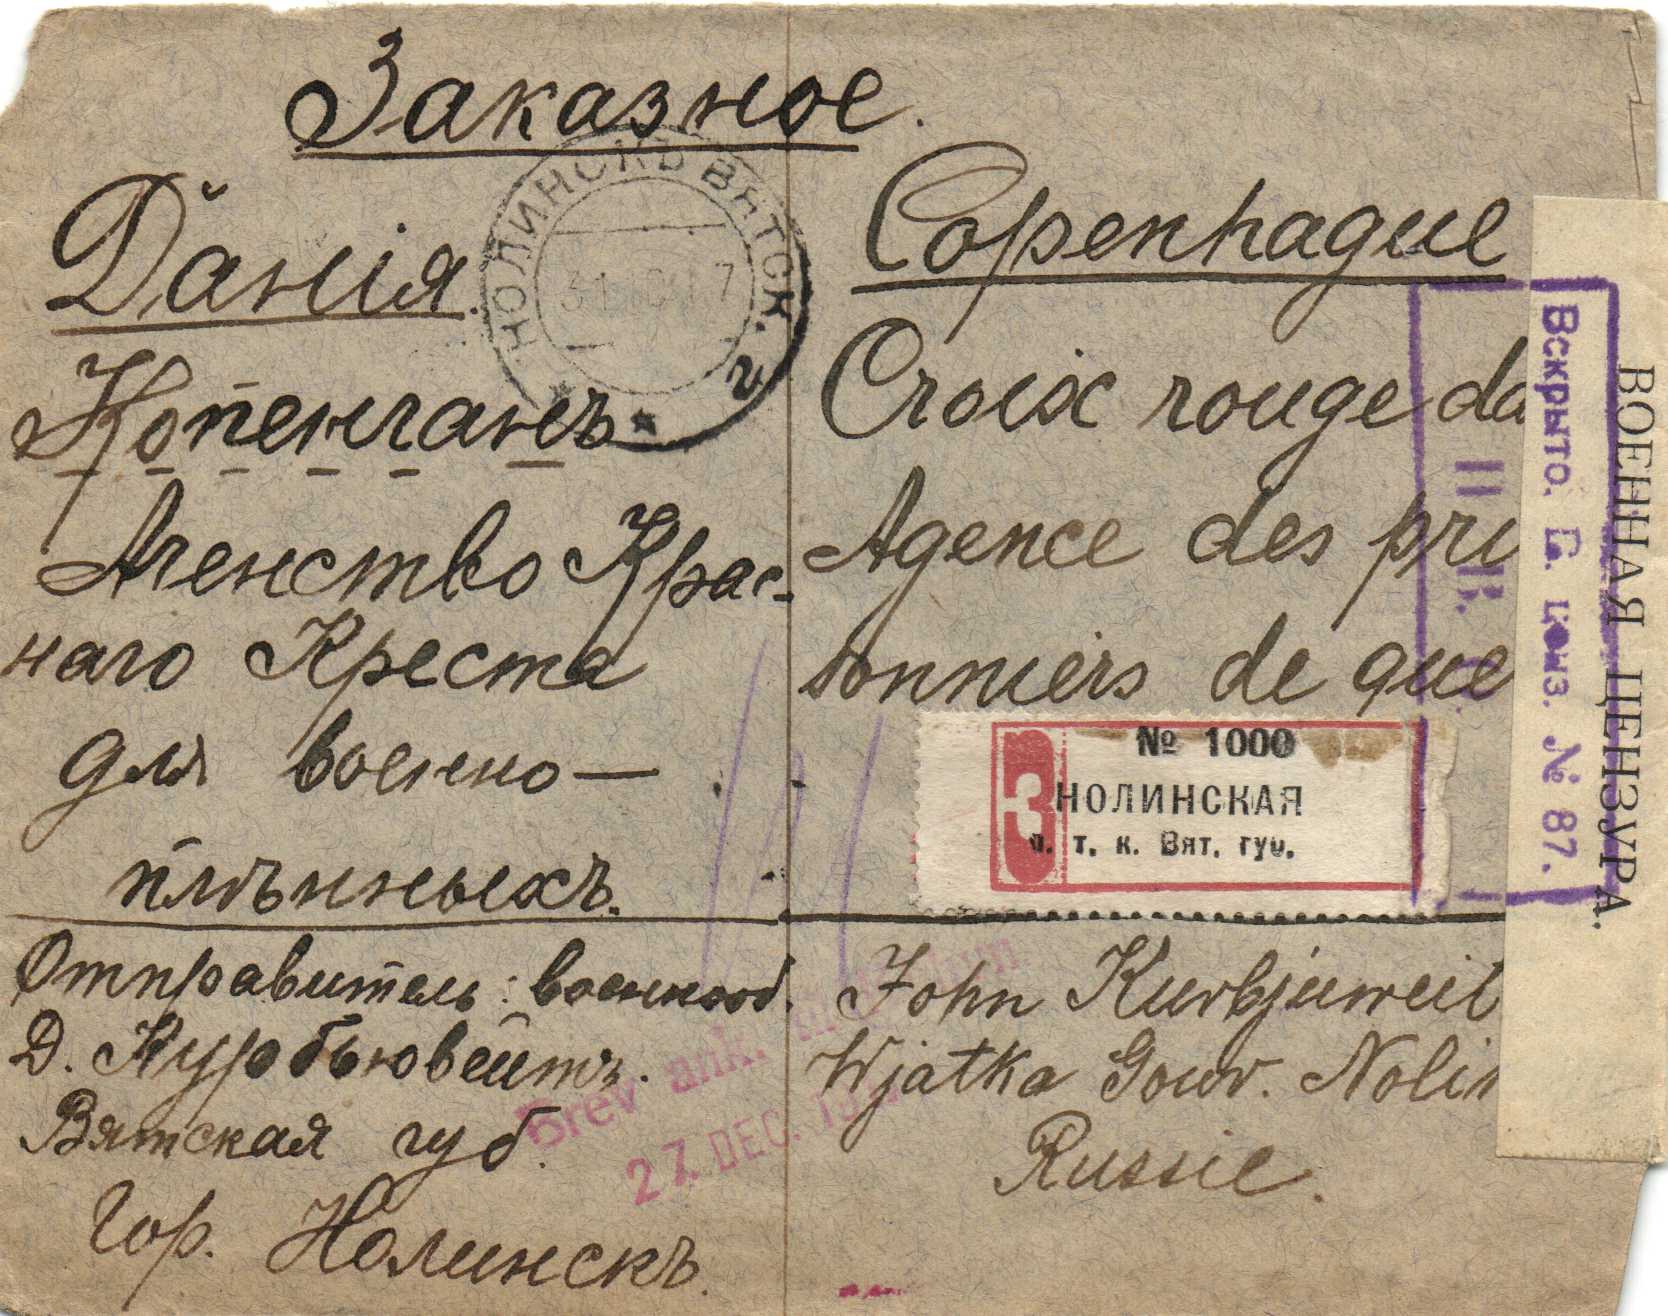 Заказное.
Данія.
Копенгагенъ
Агенство Крас-
наго Креста
для военно—
плѣнныхъ.
Отправитель: военнооб.
Д. Курбьювейтъ.
Вятская губ.
Гор. Нолинскъ.
Copenhague
Croix rouge da
Agence des pri
sonniers de gue
John Kurbjuweit
Wjatka Gouv. Nolin
Russie.
НОЛИНСКЪ ВЯТСК. г
31 7
№ 1000
З НОЛИНСКАЯ
п. т. к. Вят. губ.
Вскрыто. В. ценз. № 87.
ВОЕННАЯ ЦЕНЗУРА.
Brev ank.
27. DEC. 19